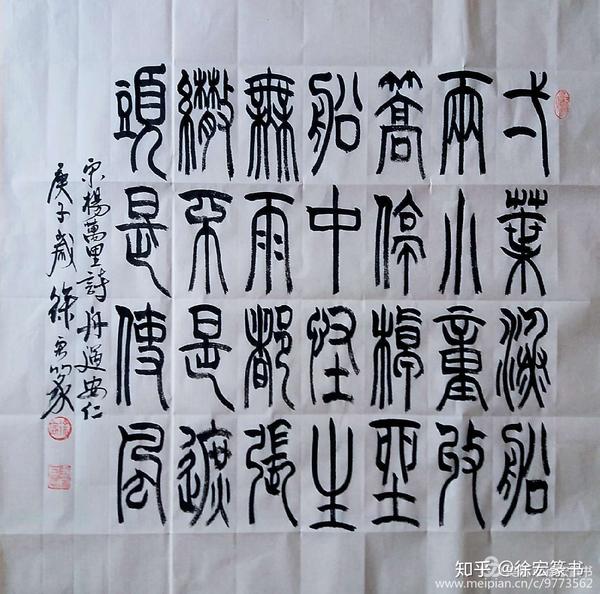 弌葉漁船
兩小童收
篙停棹坐
船中怪生
無雨都張
繖不是遮
頭是使風
宋楊萬里詩舟過安仁
庚子歲徐宏篆
知乎 @徐宏篆书
www.meipian.cn/c/9773562